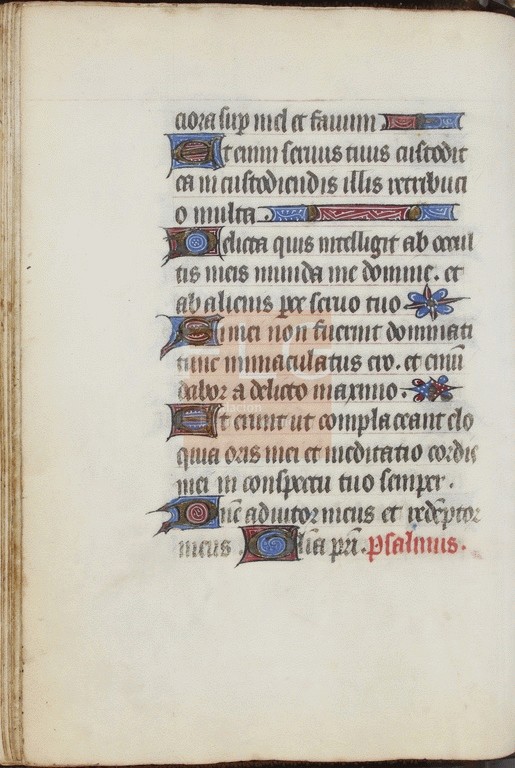 ciora sup mel et fauum
Et enim seruus tuus custodit
ea in custodiendis illis retribuci
o multa.
Delicta quis intelligit ab occul
tis meis munda me domine. et
ab alienis pce seruo tuo
Si mei non fuerint dominati
tunc immaculatus ero. et emū
dabor a delicto maximo.
Et erunt ut complaceant elo
quia oris mei et meditatio cordis
mei in conspectu tuo semper.
Dn̄e adiutor meus et redēptor
meus. Glia pri. Psalmus.